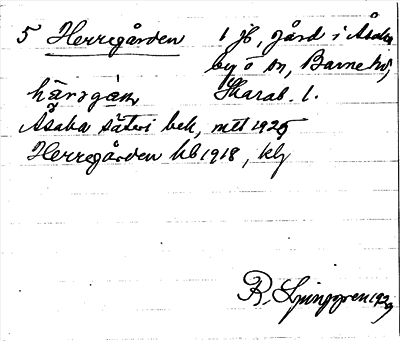 5 Herregården 1 jb, gård i Åsaka
by o sn, Barne hd,
härjgån Skarab. l.
Åsaka säteri bek, mtl 1925
Herregården kb 1918, klj
R. Ljunggren 1929